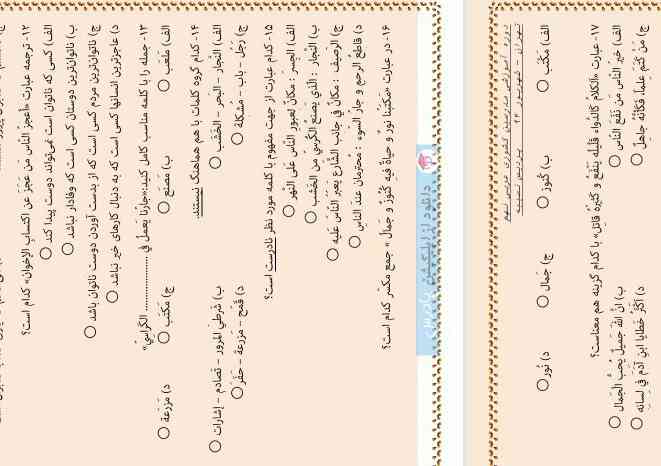 ۱۲- ترجمه عبارت «اعجز النّاس من عَجَز عَن اکتساب الإخوان» کدام است؟
الف) کسی که ناتوان است نمی‌تواند دوست پیدا کند
ب) ناتوان‌ترین دوستان کسی است که وفادار نباشد
ج) ناتوان‌ترین مردم کسی است که از بدست آوردن دوست ناتوان باشد
د) عاجزترین انسانها کسی است که به دنبال کارهای خیر نباشد
۱۳- جمله را با کلمه مناسب کامل کنید:«جارُنا یَعملُ فی .................. الکَراسیّ»
الف) ملعَب ب) مَصنَع ج) مَکتَب د) مزرعَة
۱۴- کدام گروه کلمات با هم هماهنگ نیستند.
الف) النّجار - البحر - الخَشَب ب) شُرطیُّ المُرور - تَصادم - إشارات
ج) رَجُل - باب - مُشکلة د) قَمح - مَزرعة - حَفَر
۱۵- کدام عبارت از جهت مفهوم با کلمه مورد نظر نادرست است؟
الف) الجِسر : مَکانٌ لِعبورِ النّاسِ عَلَی النَّهر
ب) النّجار : الّذی یَصنَع الکُرسیّ من الخَشَب
ج) الرصیف : مَکانٌ فی جانب الشّارع یَعبر النّاس علیه
د) قاطع الرحم و جار السوء : محترمان عند الناس
۱۶- در عبارت «مکتبتنا نورٌ و حیاةٌ فیهِ کُنُوز و جَمال » جمع مکسّر کدام است؟
دانلود از اپلیکیشن پادرس
الف) مَکتَب ب) کُنوز ج) جَمال د) نُور
۱۷- عبارت «الکلامُ کَالدَّواء قَلیلُه یَنفَعُ و کَثیرُه قاتِل» با کدام گزینه هم معناست؟
الف) خَیرُ النّاسِ مَن نَفَعَ النّاس ب) إنَّ اللهَ جَمیلٌ یُحبُّ الجَمال
ج) مَن کَتَمَ عِلماً فَکَأنَّهُ جاهِل د) أکثَرُ خَطایا ابنِ آدَم فی لِسانِه